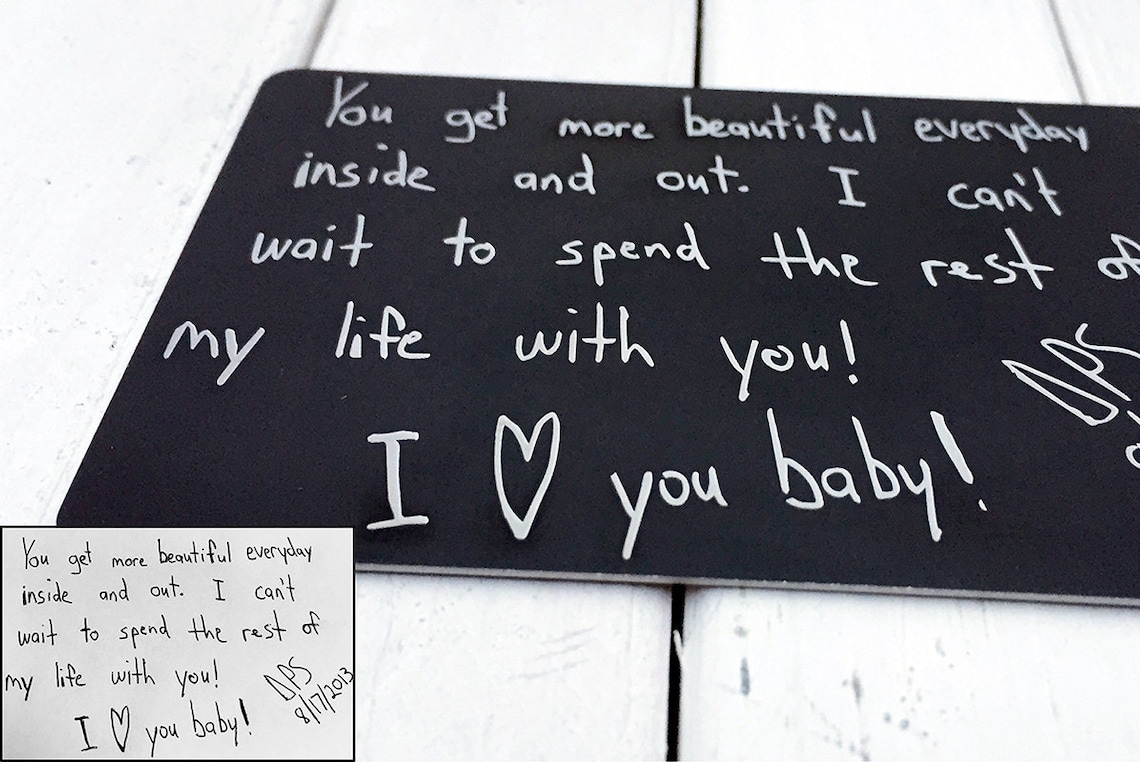 You get more beautiful everyday
inside and out. I can't
wait to spend the rest of
my life with you!
DPS
I ♡ you baby!
You get more beautiful everyday
inside and out. I can't
wait to spend the rest of
my life with you!
DPS
8/17/2013
I ♡ you baby!